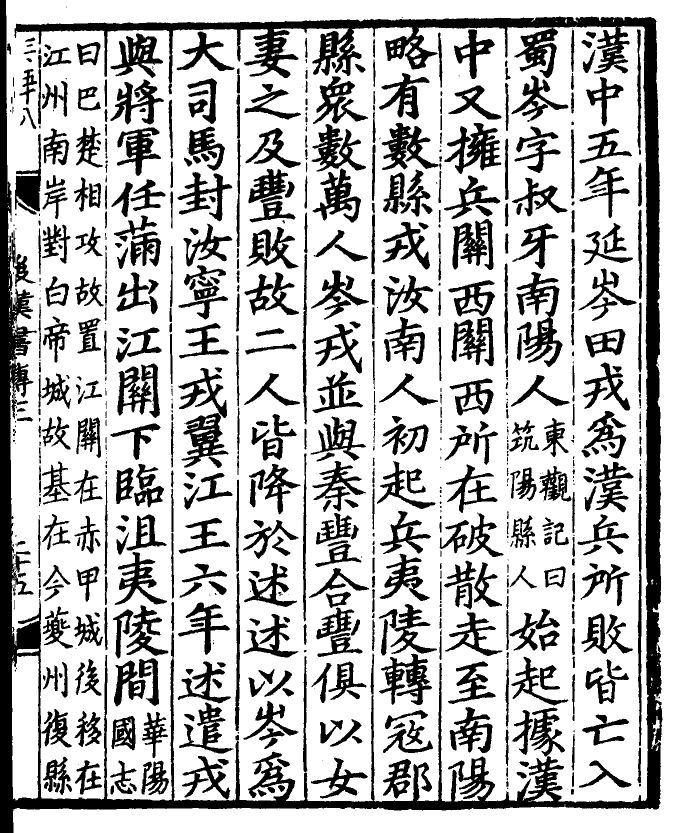 漢中五年延岑田戎爲漢兵所敗皆亡入
蜀岑字叔牙南陽人東觀記曰筑陽縣人始起據漢
中又擁兵關西關西所在破散走至南陽
略有數縣戎汝南人初起兵夷陵轉寇郡
縣衆數萬人岑戎並與秦豐合豐俱以女
妻之及豐敗故二人皆降於述述以岑爲
大司馬封汝寧王戎翼江王六年述遣戎
與將軍任滿出江關下臨沮夷陵間華陽國志
曰巴楚相攻故置江關在赤甲城後移在
江州南岸對白帝城故基在今夔州復縣
後漢書傳三